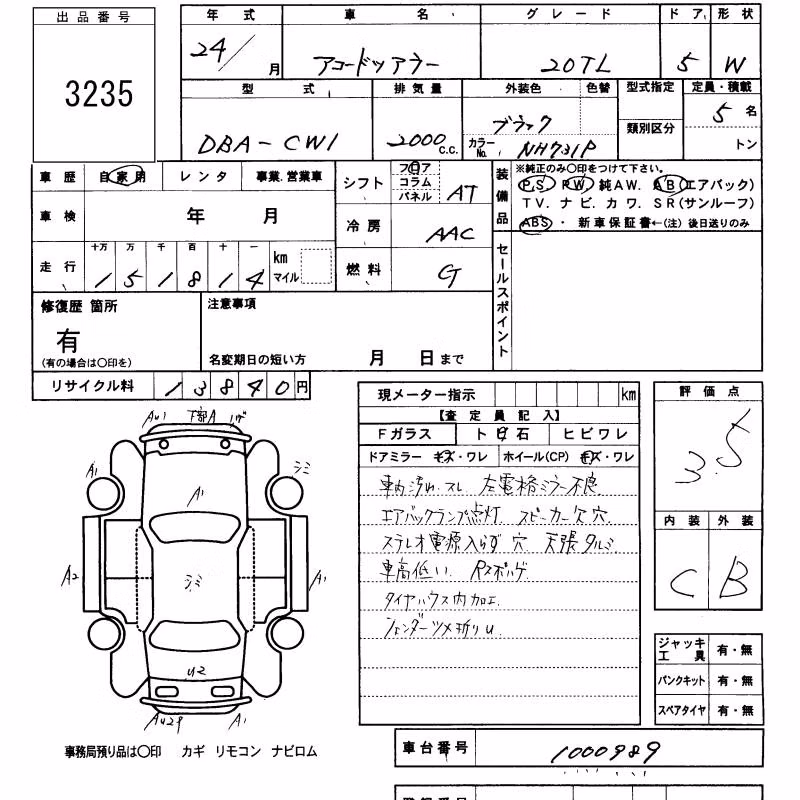 出品番号
3235
年式 車名 グレード ドア 形状
24/ 月 アコードツアラー 20TL 5 W
型式 排気量 外装色 色替 型式指定 定員・積載
DBA-CW1 2000 C.C. ブラック カラーNo. NH731P 類別区分 5 名
トン
車歴 自家用 レンタ 事業.営業車
車検 年 月
走行 十万 万 千 百 十 一
1 5 1 8 1 4 km マイル
シフト フロア コラム パネル AT
冷房 AAC
燃料 G
装備品
※純正のみ〇印をつけて下さい。
P.S. PW 純AW. AB(エアバック)
TV. ナビ. カワ. SR(サンルーフ)
ABS ・ 新車保証書←(注) 後日送りのみ
セールスポイント
修復歴 箇所
有
(有の場合は〇印を)
注意事項
名変期日の短い方 月 日まで
リサイクル料 1 3 8 4 0 円
現メーター指示 km
【査定員記入】
Fガラス ト ビ 石 ヒビワレ
ドアミラー キズ・ワレ ホイール(CP) キズ・ワレ
車内汚れ.スレ 左電格ミラー不良
エアバックランプ点灯 スピーカー欠 穴
ステレオ電源入らず 穴 天張タルミ
車高低い. Rスポハゲ
タイヤハウス内加工
フェンダーツメ折りU.
評価点
3.5
内装 外装
C B
ジャッキ工具 有・無
パンクキット 有・無
スペアタイヤ 有・無
AU1 下部A
A1 シミ
A1
A2 シミ A1
U2
A1
事務局預り品は〇印 カギ リモコン ナビロム
車台番号 1000989